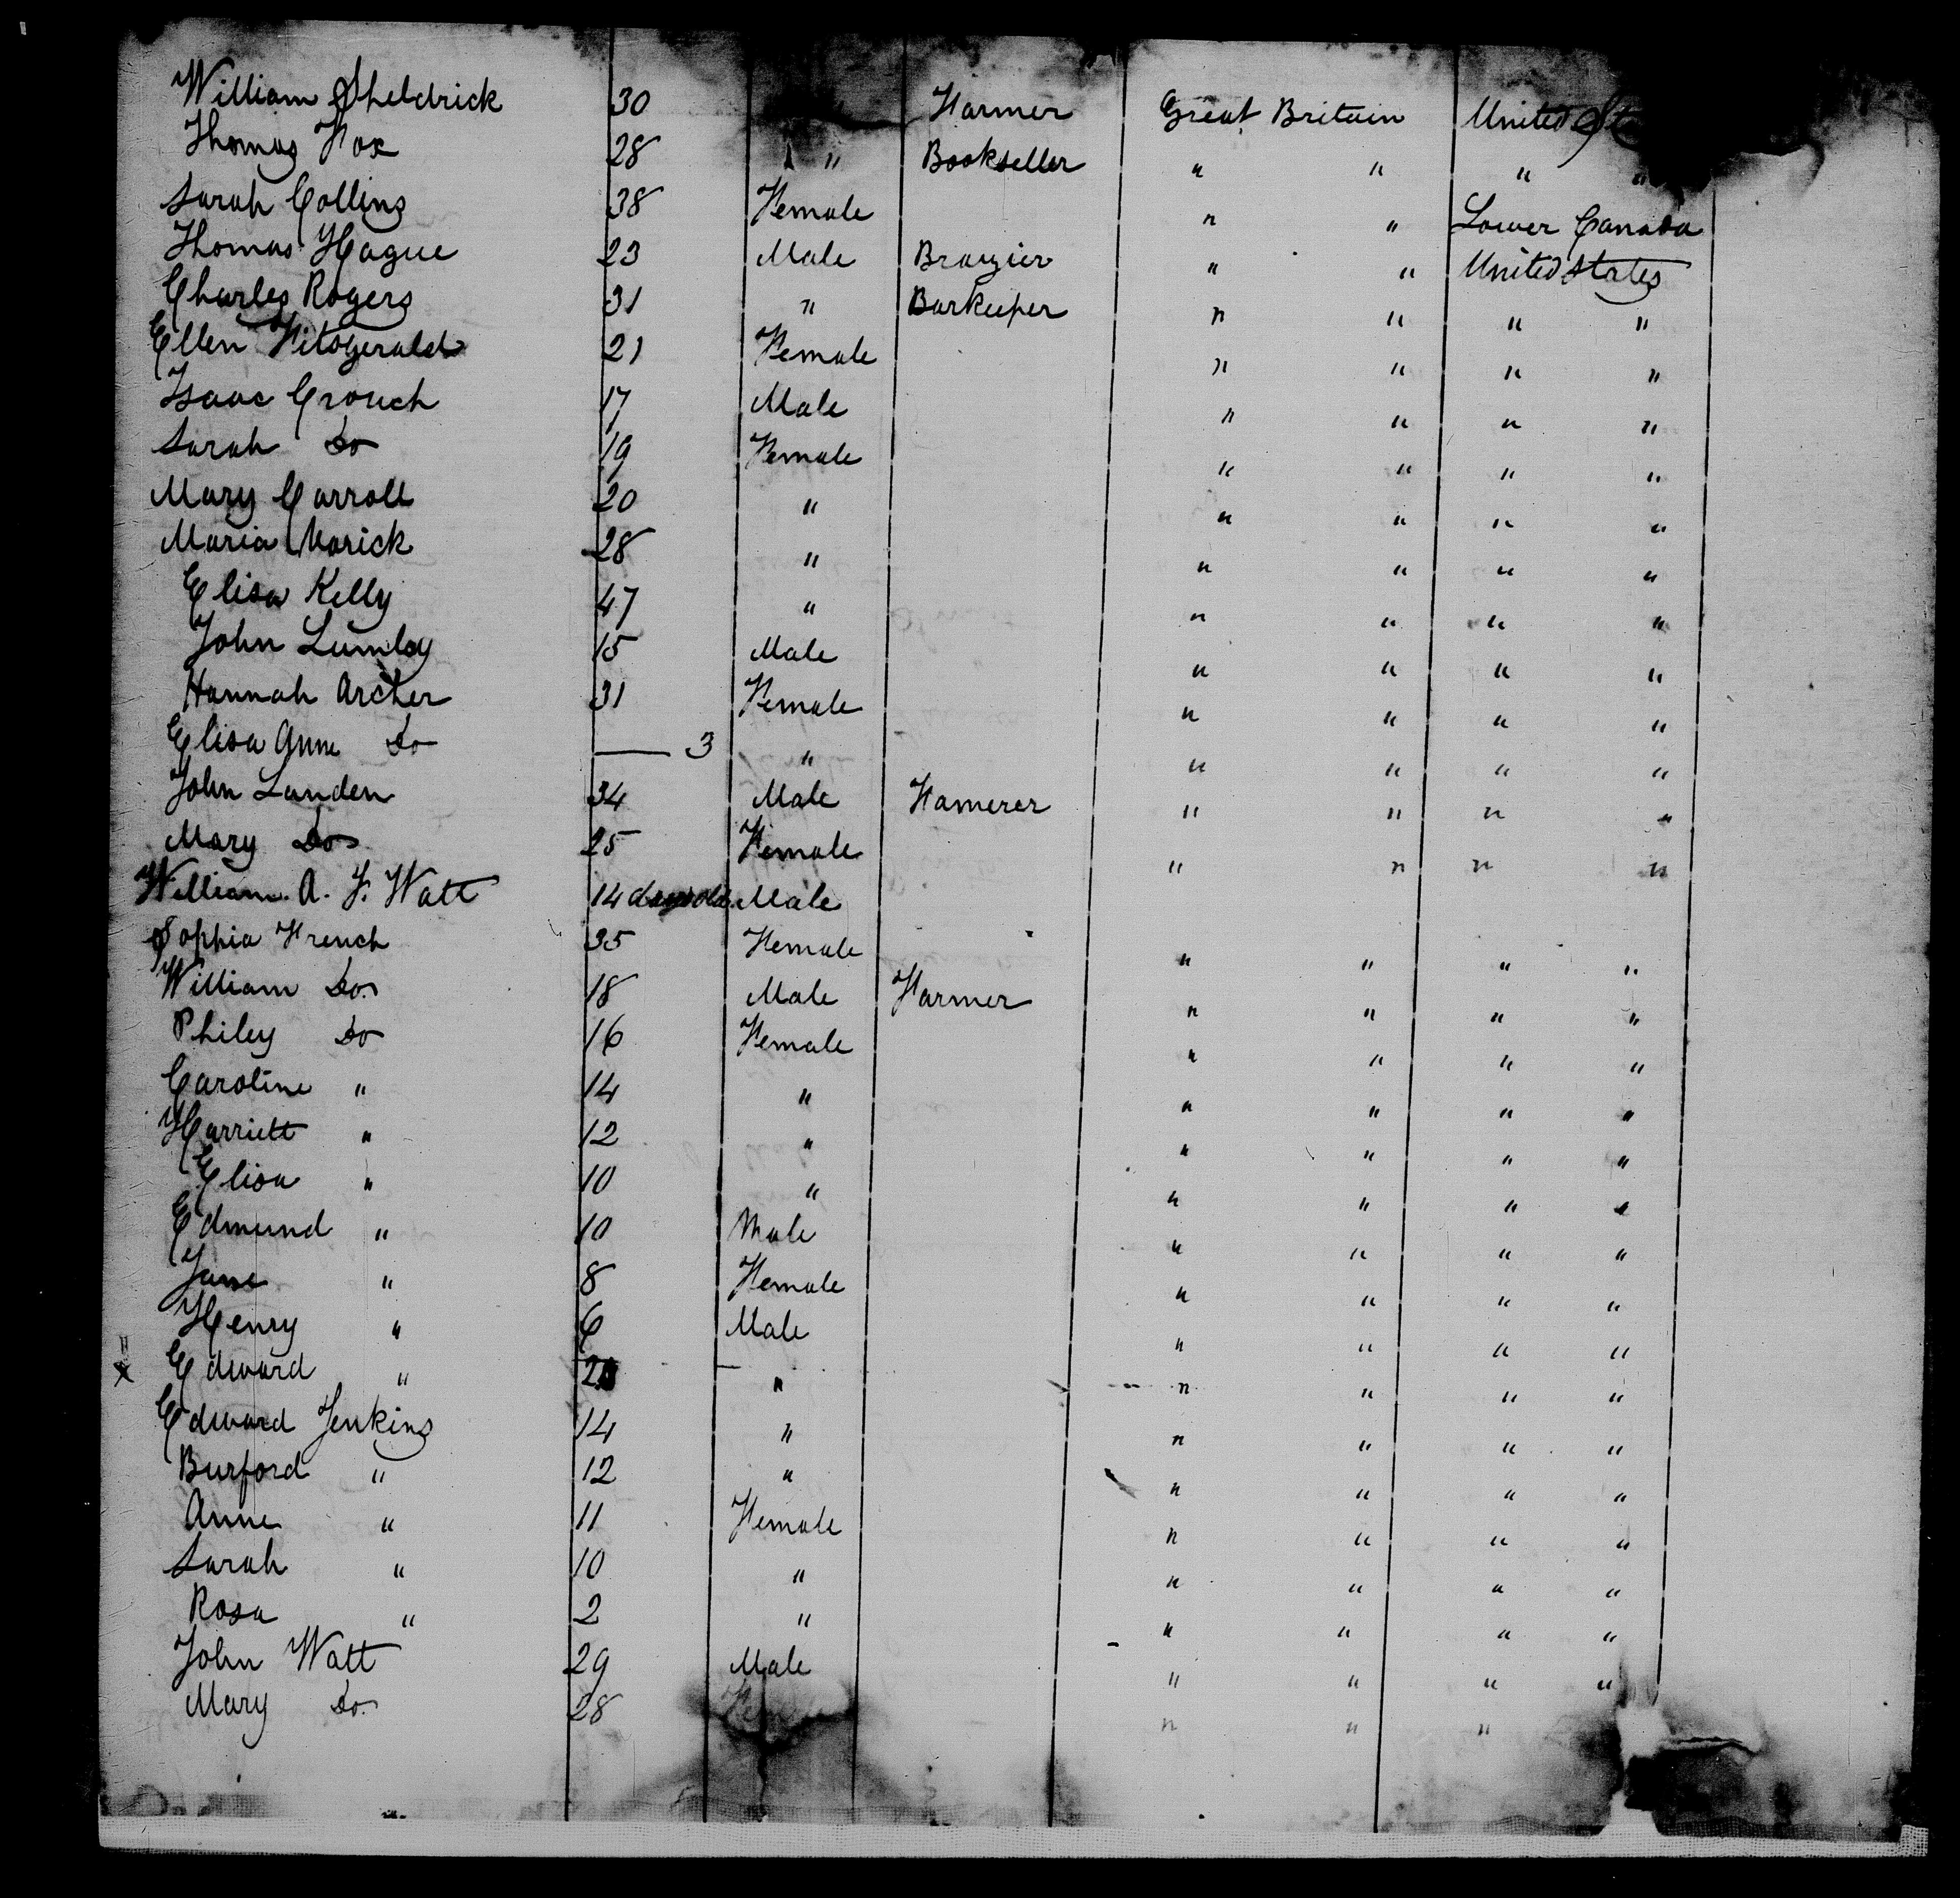 William Sheldrick 30 Farmer Great Britain United
Thomas Fox 28 " Bookseller " " " "
Sarah Collins 38 Female " " Lower Canada
Thomas Hague 23 Male Brazier " " United States
Charles Rogers 31 " Barkeeper " " " "
Ellen Fitzgerald 21 Female " " " "
Isaac Crouch 17 Male " " " "
Sarah Do 19 Female " " " "
Mary Carroll 20 " " " " "
Maria 28 " " " " "
Elisa Kelly 47 " " " " "
John Lumley 15 Male " " " "
Hannah Archer 31 Female " " " "
Elisa Anne Do — 3 " " " " "
John Landen 34 Male Famerer " " " "
Mary Do 25 Female " " " "
William. A. F. Watt 14 days old Male
Sophia French 35 Female " " " "
William Do. 18 Male Farmer " " " "
Philey Do 16 Female " " " "
Caroline " 14 " " " " "
Harriett " 12 " " " " "
Elisa " 10 " " " " "
Edmund " 10 Male " " " "
Jane " 8 Female " " " "
Henry " 6 Male " " " "
Edward " " " " " "
Edward Jenkins 14 " " " " "
Burford " 12 " " " " "
Anne " 11 Female " " " "
Sarah " 10 " " " " "
Rosa " 2 " " " " "
John Watt 29 Male " " " "
Mary Do. 28 " " "